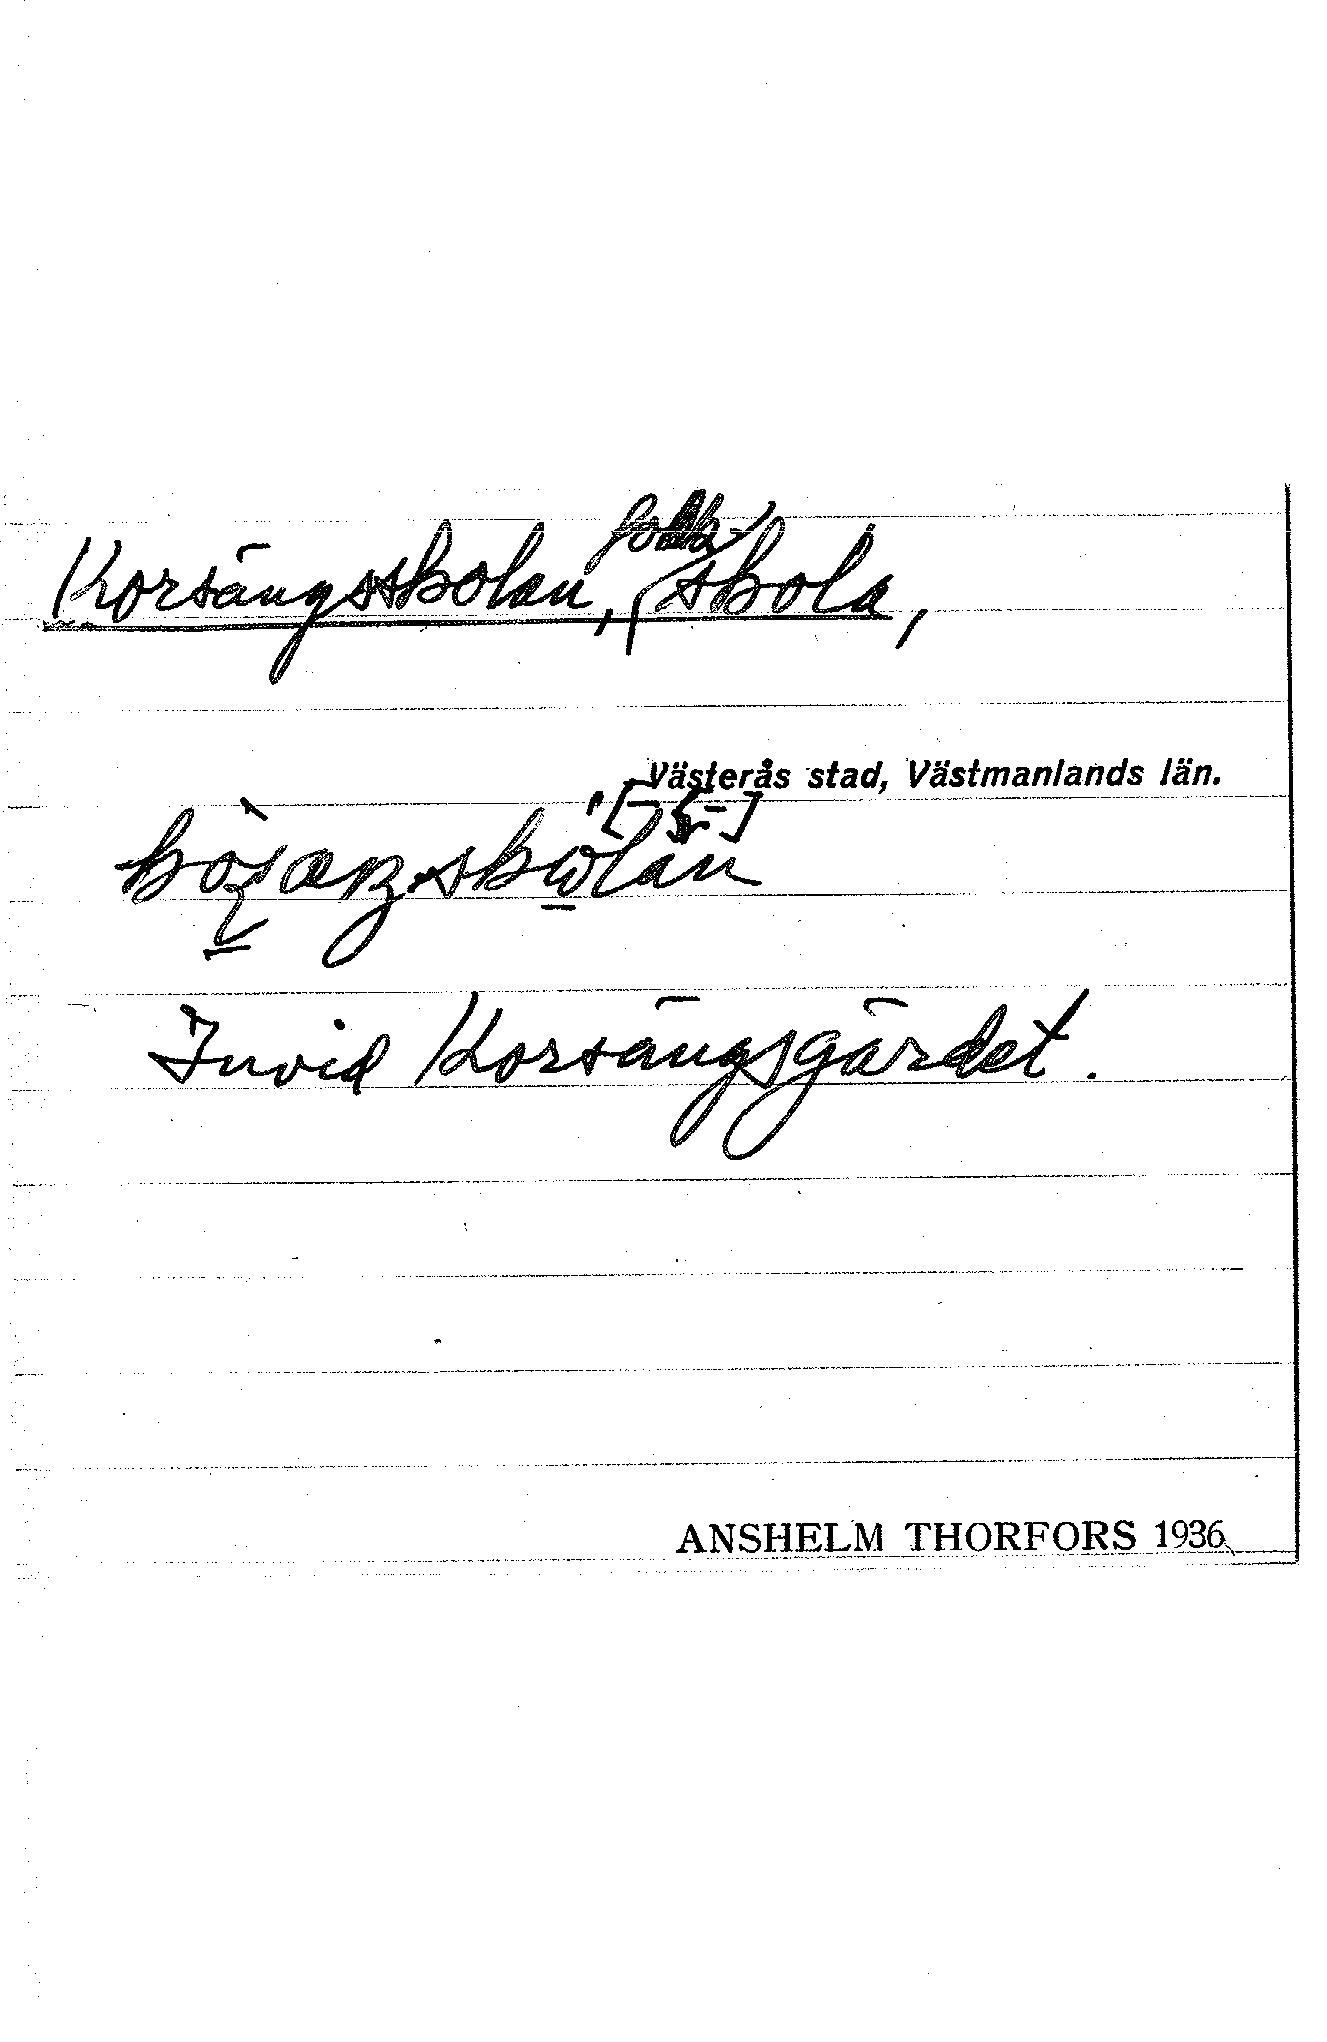 Korsängsskolan, folkskola,
Västerås stad, Västmanlands län.
Invid Korsängsgärdet.
ANSHELM THORFORS 1936